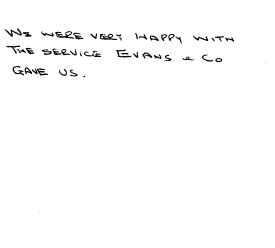 WE WERE VERY HAPPY WITH
THE SERVICE EVANS & CO
GAVE US.